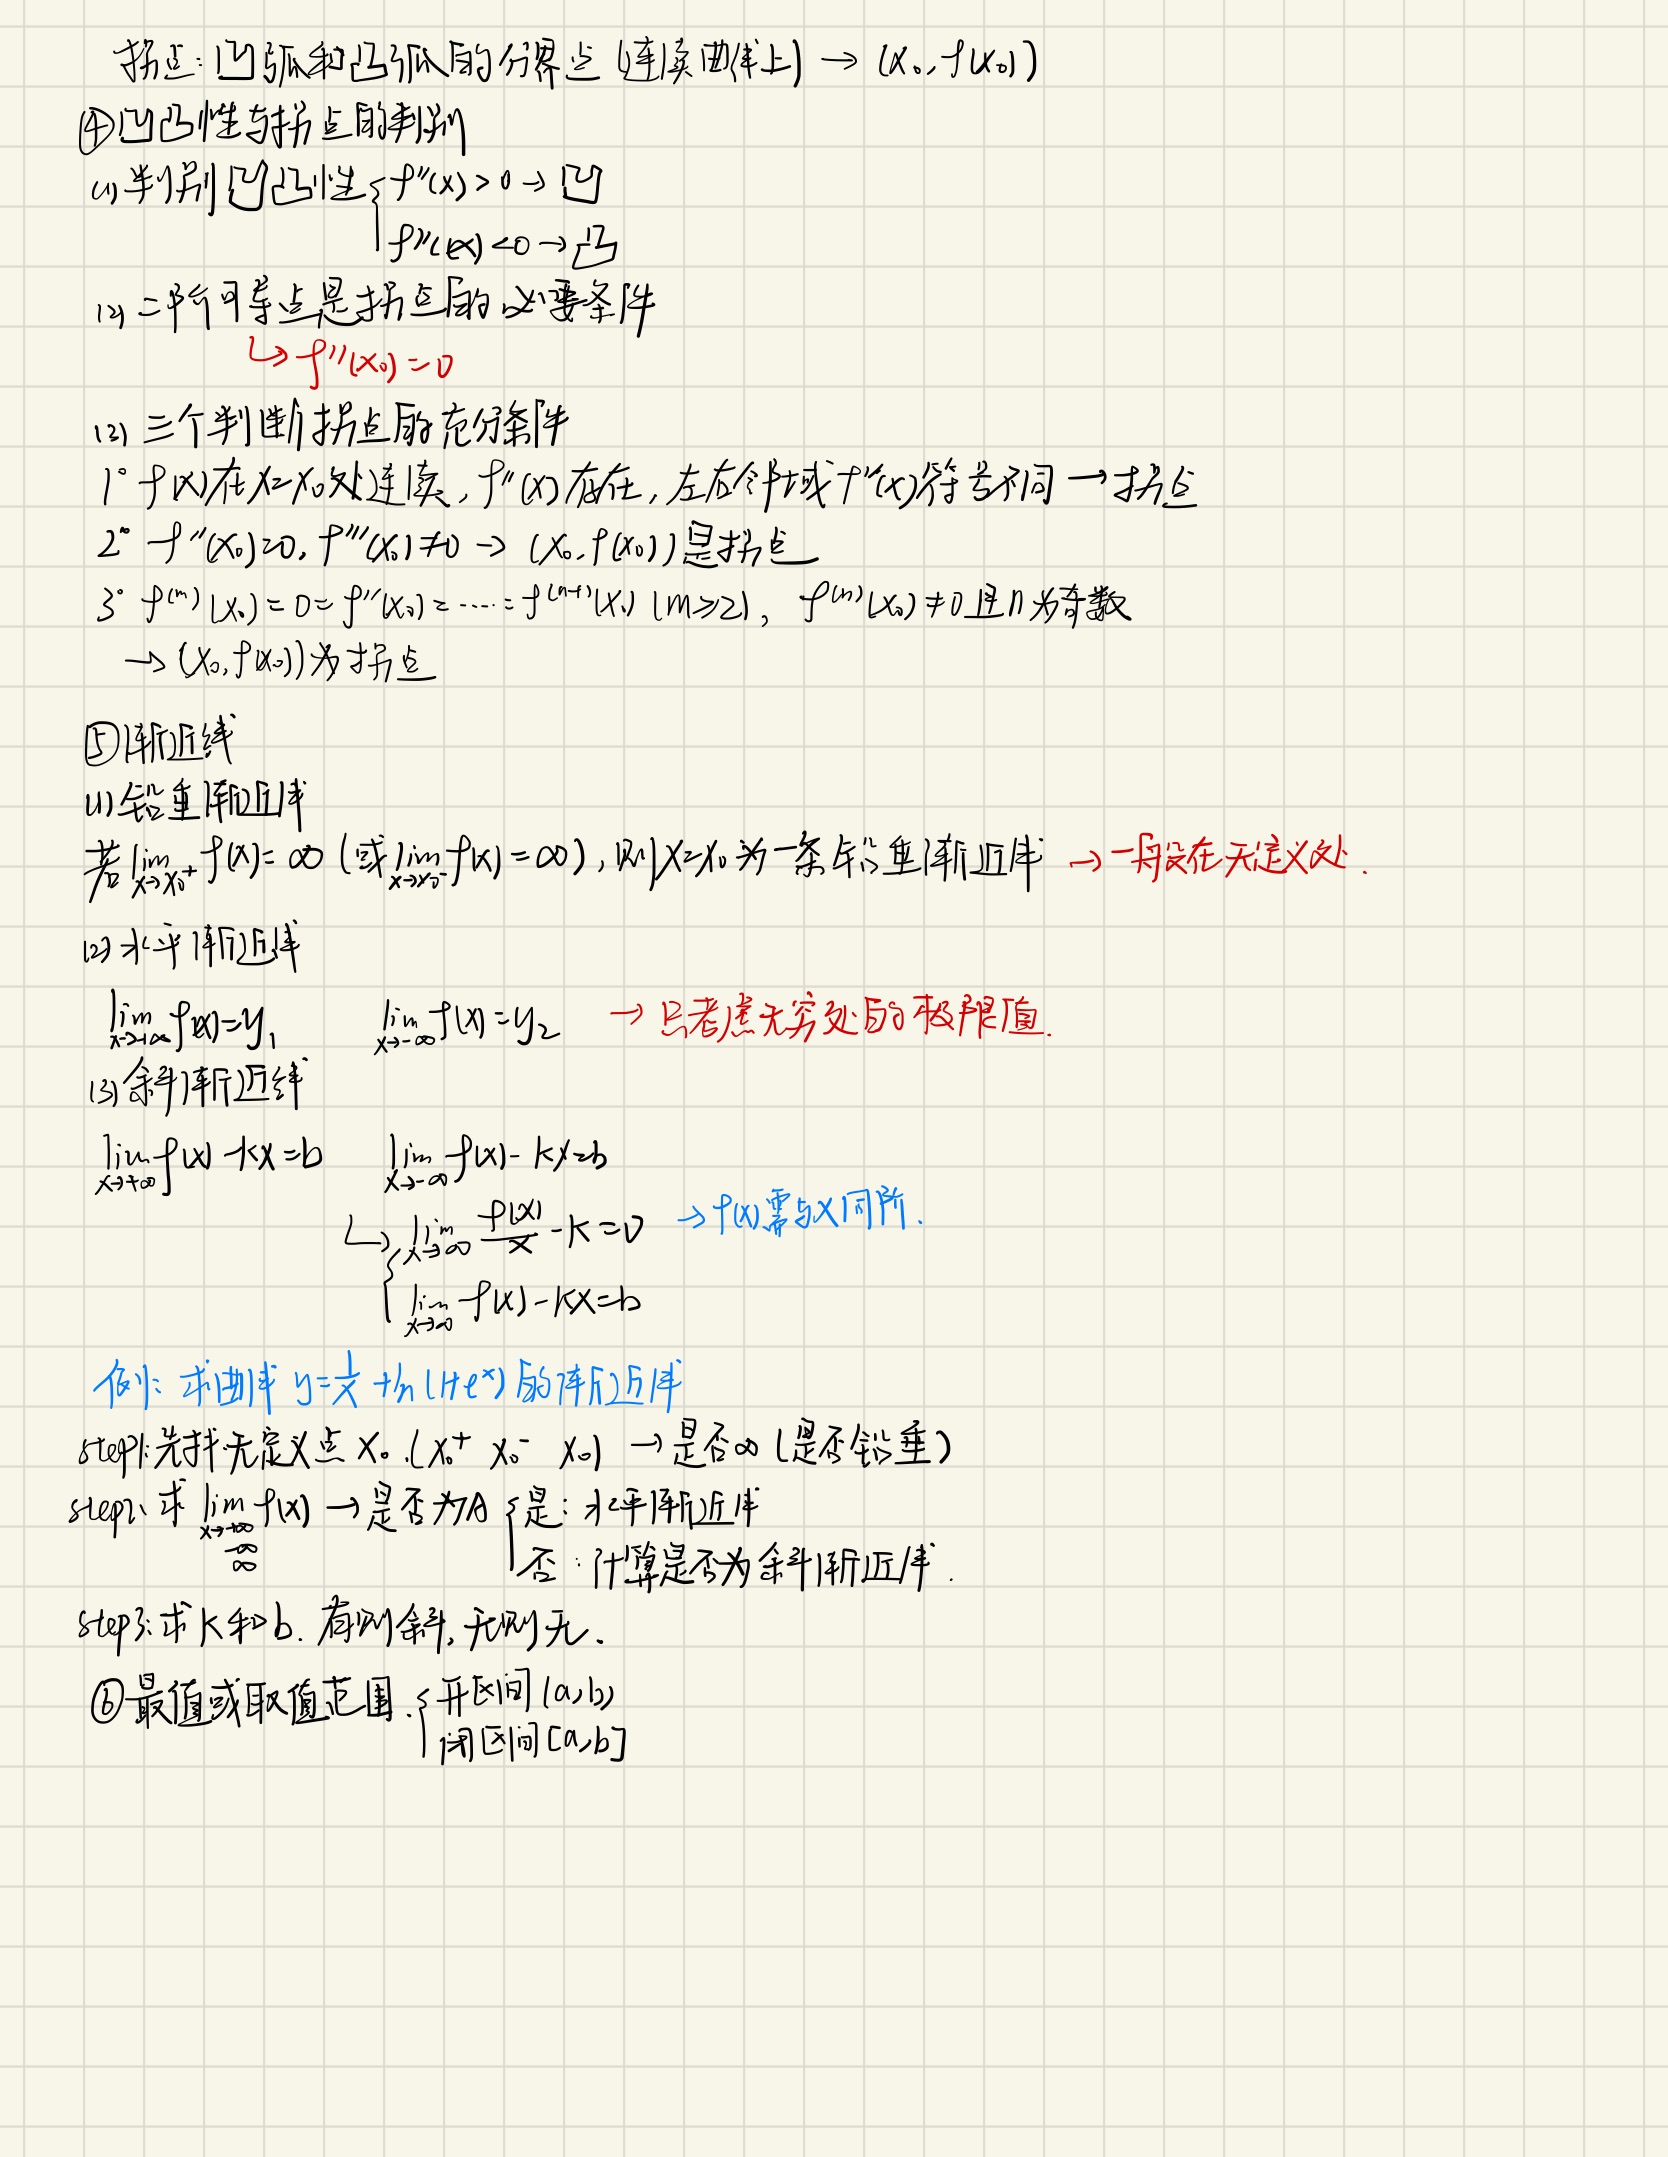 拐点：凹弧和凸弧的分界点（连续曲线上）→ (x₀, f(x₀))
④凹凸性与拐点的判别
(1) 判别凹凸性 { f''(x) > 0 → 凹
f''(x) < 0 → 凸
(2) 二阶可导点是拐点的必要条件
↳ f''(x₀) = 0
(3) 三个判断拐点的充分条件
1° f(x)在x=x₀处连续，f''(x)存在，左右邻域f''(x)符号不同 → 拐点
2° f''(x₀)=0, f'''(x₀)≠0 → (x₀, f(x₀))是拐点
3° f⁽ᵐ⁾(x₀) = 0 = f''(x₀) = …… = f⁽ⁿ⁻¹⁾(x₀) (m≥2), f⁽ⁿ⁾(x₀) ≠ 0 且n为奇数
→ (x₀, f(x₀))为拐点
⑤渐近线
(1) 铅垂渐近线
若 lim x→x₀⁺ f(x) = ∞ (或 lim x→x₀⁻ f(x) = ∞), 则x=x₀为一条铅垂渐近线 → 一般设在无定义处.
(2) 水平渐近线
lim x→+∞ f(x)=y₁ lim x→-∞ f(x)=y₂ → 只考虑无穷处的极限值.
(3) 斜渐近线
lim x→+∞ f(x) - kx = b lim x→-∞ f(x) - kx = b
↳ { lim x→∞ f(x)/x - k = 0 → f(x)需与x同阶.
lim x→∞ f(x) - kx = b
例1: 求曲线 y = 1/x + ln(1+eˣ) 的渐近线
step1: 先找无定义点 x₀. (x₀⁺ x₀⁻ x₀) → 是否∞ (是否铅垂)
step2: 求 lim x→+∞ -∞ ∞ f(x) → 是否为A { 是：水平渐近线
否：计算是否为斜渐近线.
step3: 求k和b. 有则斜, 无则无.
⑥最值或取值范围. { 开区间 (a,b)
闭区间 [a,b]